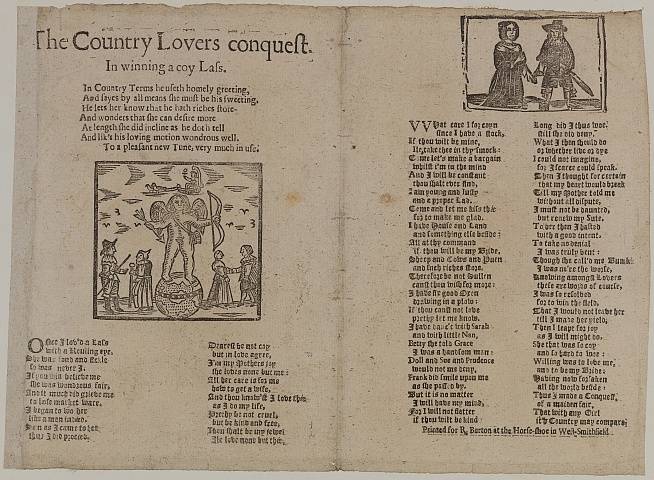 The Country Lovers conquest.
In winning a coy Lass.
In Country Terms he useth homely greeting,
And sayes by all means she must be his sweeting,
He lets her know that he hath riches store-
And wonders that she can desire more
At length she did incline as he doth tell
And lik's his loving motion wondrous well.
To a pleasant new Tune, very much in use.
ONce I lov'd a Lass
with a Rouling eye,
She was fond and
so was never I.
If you will believe me
she was wondrous fair,
And it much did grieve me
to lose market ware.
I began to wo her
like a man indeed,
Soon as I came to her
thus I did proceed.
Dearest be not coy
but in love agree,
I'm my Mothers joy
she loves none but me:
All her care is for me
how to get a wife,
And thou know'st I love thee
as I do my life,
Prethy be not cruel,
but be kind and free,
Thou shalt be my jewel
Ile love none but thee.
VVHat care I for coyn
since I have a stock,
If thou wilt be mine,
Ile take thee in thy smock:
Come let's make a bargain
whilst I'm in the mind
And I will be constant
thou shalt ever find,
I am young and lusty
and a proper Lad.
Come and let me kiss thee
for to make me glad.
I have House and Land
and something else beside:
All at thy command
if thou will be my Bride,
Sheep and Cows and
and such riches store.
Therefore be not sullen
canst thou wish for more:
I have six good Oxen
drawing in a plow:
If thou canst not love
prethy let me know.
I have with Sarah
and with little Nan,
Betty she told Grace
I was a handsom man:
Doll and Sue and Prudence
would not me deny,
Frank did smile upon me
as she passed by.
But it is no matter
I will have my mind,
For I will not flatter
if thou wilt be kind
Long did I thus woe
still she did deny,
What I then should do
or whether live or dye
I could not imagine,
for I scarce could speak.
Then I thought for certain
that my heart would break
Till my Mother told me
without all dispute,
I must not be daunted,
but renew my Sute.
To her then I hasted
with a good intent.
To take no denial
I was truly bent:
Though she call'd me
I was ne're the worse,
Knowing amongst Lovers
these are words of course,
I was so resolved
for to win the field,
That I would not leave her
till I made her yield,
Then I leapt for joy
as I will might do.
She that was so coy
and so hard to woe:
Willing was to love me,
and to be my Bride:
Having now forsaken
all the world beside:
Thus I made a Conquest,
of a maiden fair,
That with any Girl
ith Country may compare
Printed for R. Burton at the Horse-shoe in West-Smithfield